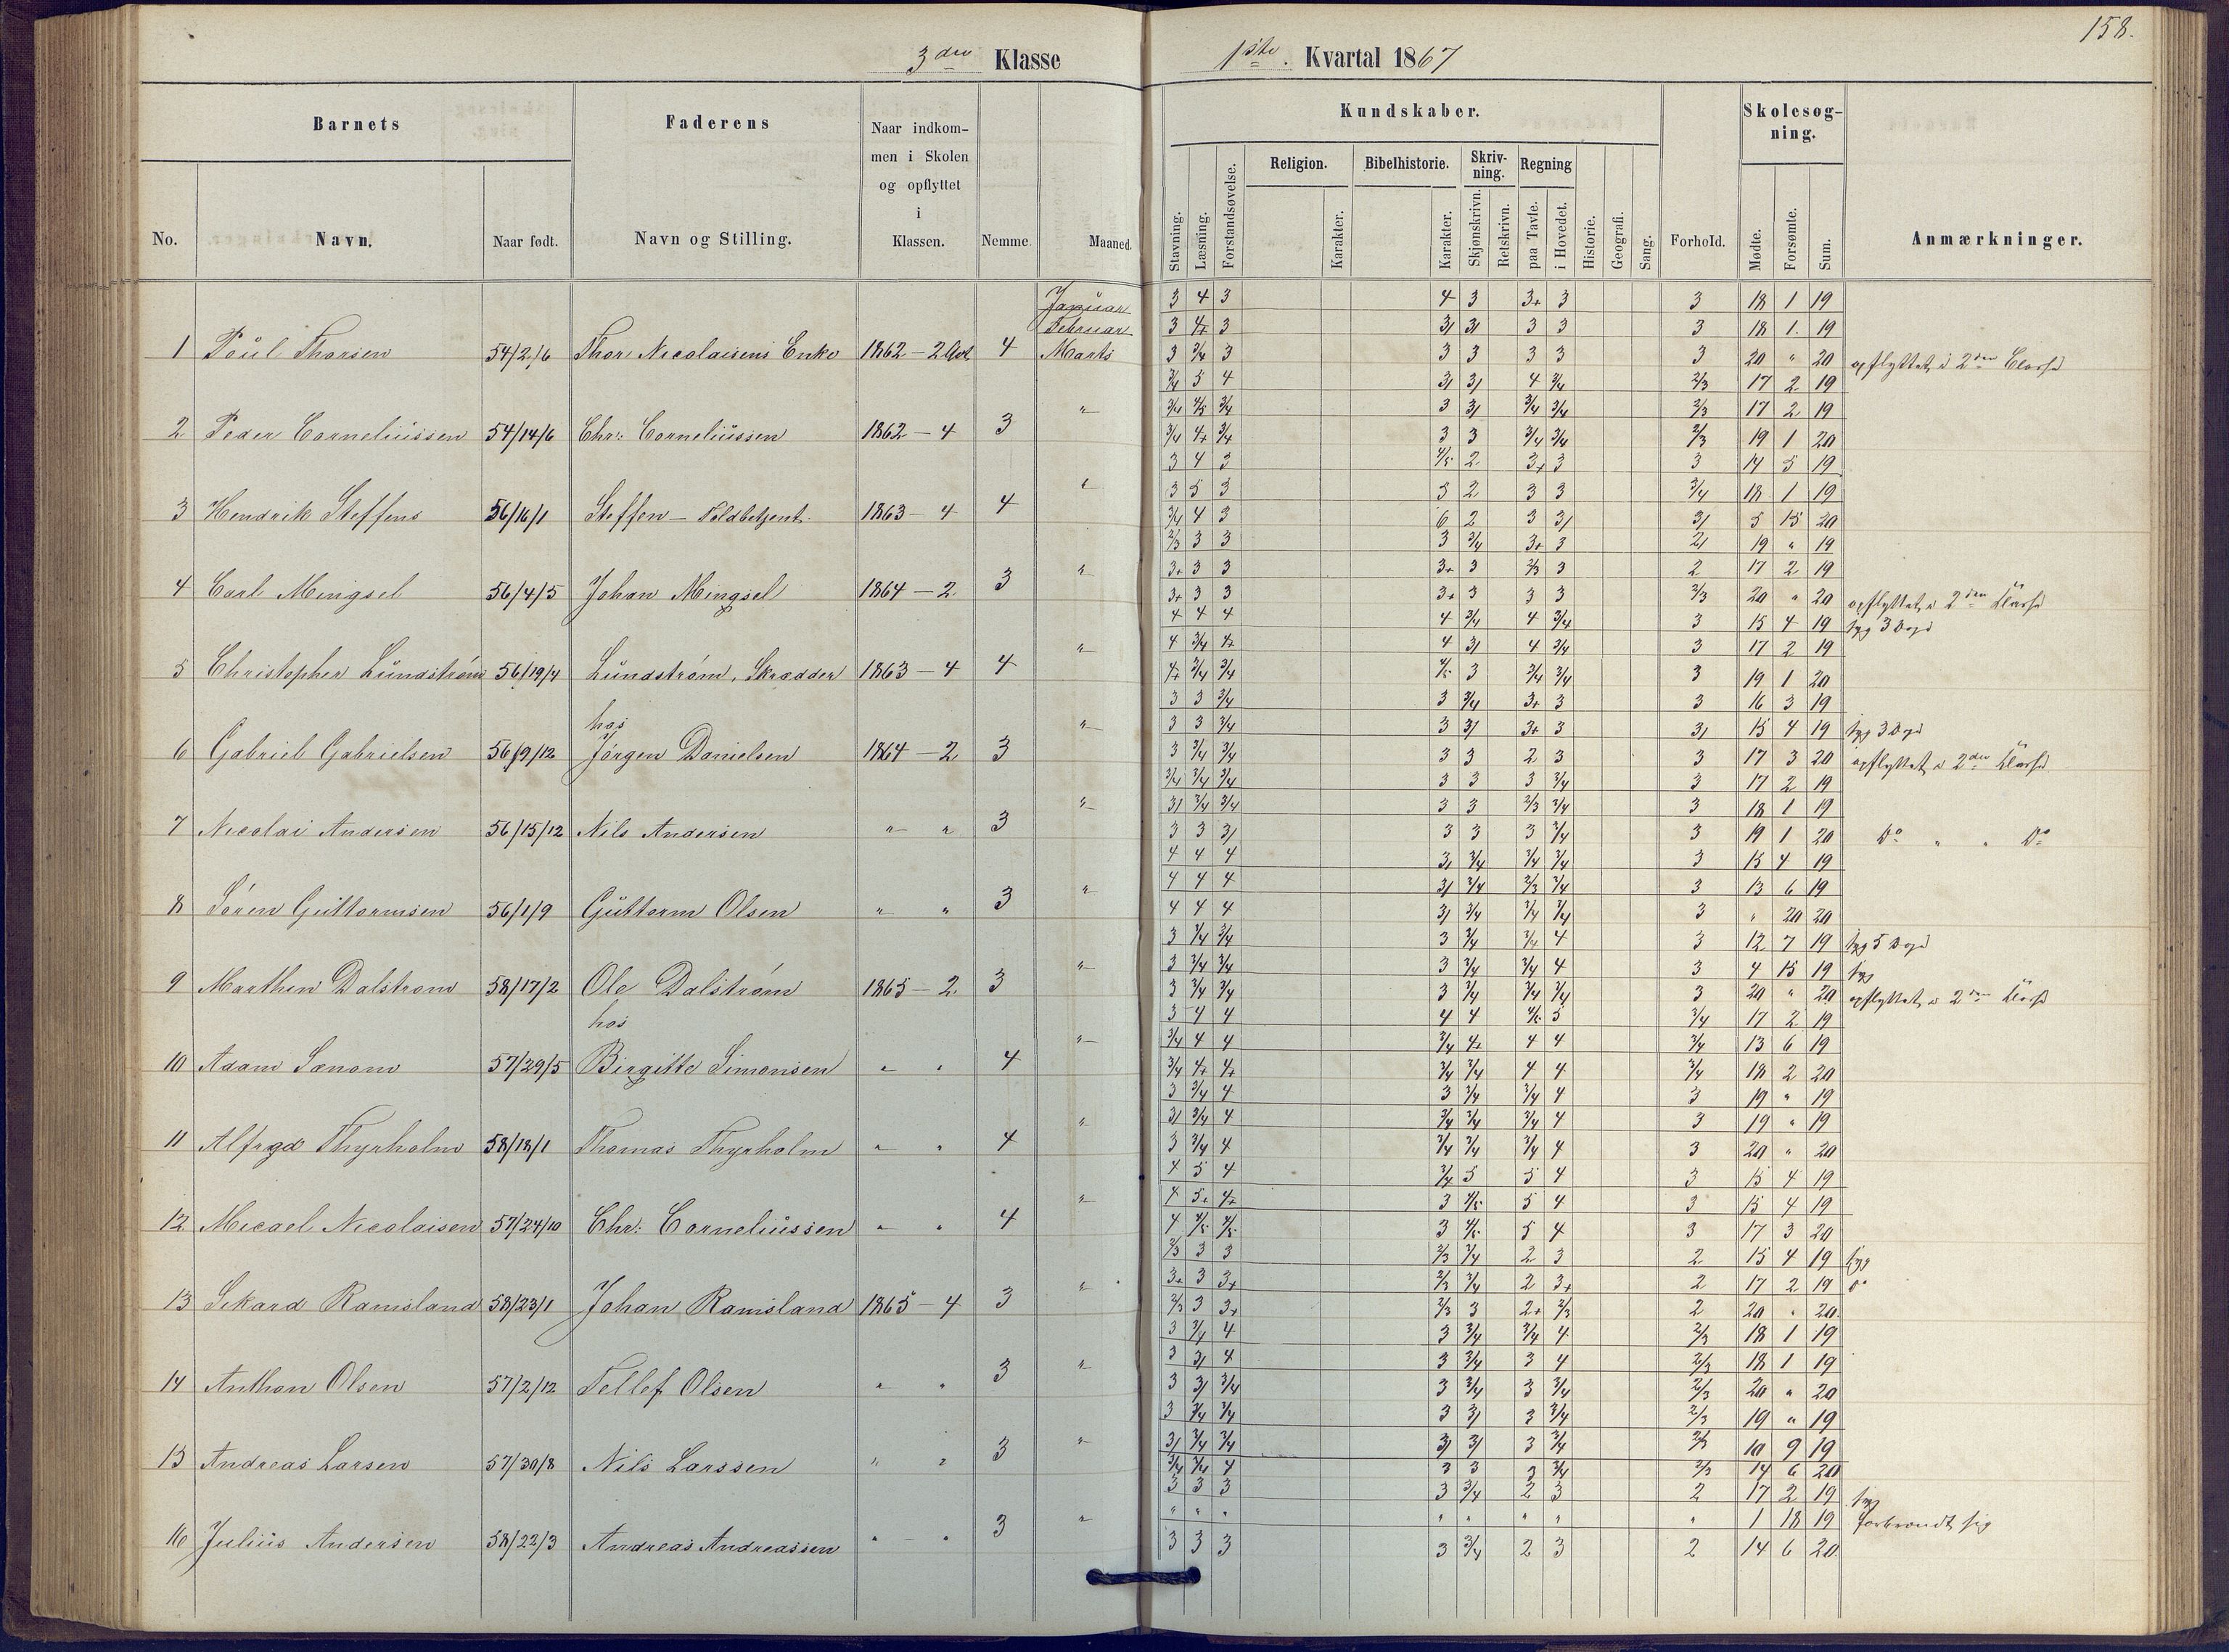 158.
3die Klasse
1ste. Kvartal 1867
Barnets
Faderens
Naar indkom-
men i Skolen
og opflyttet
i
Klassen.
No.
Navn.
Naar født.
Navn og Stilling.
Nemme.
Maaned.
Kundskaber.
Skolesøg-
ning.
Stavning.
Læsning.
Forstandsøvelse.
Religion.
Karakter.
Bibelhistorie.
Karakter.
Skriv-
ning.
Skjønskrivn.
Retskrivn.
Regning
paa Tavle.
i Hovedet.
Historie.
Geografi.
Sang.
Forhold.
Mødte.
Forsømte.
Sum.
Anmærkninger.
Januar 3 4 3 4 3 3+ 3 3 18 1 19
Februar 3 4+ 3 3/ 3/ 3 3 3 18 1 19
1 Poül Thorsen 54/2/6 Thor Nicolaisens Enke 1862 – 2 4 Marts 3 3/4 3 3 3 3 3 3 20 " 20 opflyttet i 2den Classe
3/4 5 4 3/ 3/ 4 3/4 2/3 17 2 19
3/4 4/5 3/4 3 3/ 3/4 3/4 2/3 17 2 19
2 Peder Corneliüssen 54/14/6 Chr: Corneliüssen 1862 – 4 3 " 3/4 4+ 3/4 3 3 3/4 3/4 2/3 19 1 20
3 4 3 4/5 2 3+ 3 3 14 5 19
3 5 3 5 2 3 3 3/4 18 1 19
3 Hendrik Steffens 56/16/1 Steffen – Toldbetjent 1863 – 4 4 " 3/4 4 3 6 2 3 3/ 3/ 5 15 20
2/3 3 3 3 3/4 3+ 3 2/ 19 " 19
3+ 3 3 3+ 3 2/3 3 2 17 2 19
4 Carl Mingsel 56/4/5 Johan Mingsel 1864 – 2 3 " 3+ 3 3 3+ 3 3 3 2/3 20 " 20 opflyttet i 2den Classe
4 4 4 4 3/4 4 3/4 3 15 4 19 syg 3 Dage
4 3/4 4+ 4 3/ 4 3/4 3 17 2 19
5 Christopher Lündström 56/19/4 Lündström, Skrædder 1863 – 4 4 " 4+ 3/4 3/4 4/5 3 3/4 3/4 3 19 1 20
3 3 3/4 3 3/4 3+ 3 3 16 3 19
hos 3 3 3/4 3 3/ 3+ 3 3/ 15 4 19 syg 3 Dage
6 Gabriel Gabrielsen 56/9/12 Jörgen Danielsen 1864 – 2 3 " 3 3/4 3/4 3 3 2 3 3 17 3 20 opflyttet i 2den Classe
3/4 3/4 3/4 3 3 3 3/4 3 17 2 19
3/ 3/4 3/4 3 3 2/3 3/4 3 18 1 19
7 Nicolai Andersen 56/15/12 Nils Andersen " " 3 " 3 3 3/ 3 3 3 3/4 3 19 1 20 Do " " Do
4 4 4 3/ 3/4 3/4 3/4 3 15 4 19
4 4 4 3/ 3/4 2/3 3/4 3 13 6 19
8 Sören Güttormsen 56/1/9 Güttorm Olsen " " 3 " 4 4 4 3/ 3/4 3/4 3/4 3 " 20 20
3 3/4 3/4 3 3/4 3/4 4 3 12 7 19 syg 5 Dage
3 3/4 3/4 3 3/4 3/4 4 3 4 15 19 syg
9 Marthin Dalström 58/17/2 Ole Dalström 1865 – 2 3 " 3 3/4 3/4 3 3/4 3/4 3/4 3 20 " 20 opflyttet i 2den Classe
3 4 4 4 4 4/5 5 3/4 17 2 19
hos 3/4 4 4 3/4 4+ 4 4 3/4 13 6 19
10 Adam Sanom 57/29/5 Birgitte Simonsen " " 4 " 3/4 4+ 4+ 3/4 3/4 4 4 3/4 18 2 20
3 3/4 4 3 3/4 3/4 4 3 19 " 19
3/ 3/4 4 3/4 3/4 3/4 4 3 19 " 19
11 Alfred Thyrholm 58/18/1 Thomas Thyrholm " " 4 " 3 3/4 4 3/4 3/4 3/4 4 3 20 " 20
4 5 4 3/4 5 5 4 3 15 4 19
4 5+ 4+ 3 4/5 5 4 3 15 4 19
12 Micael Nicolaisen 57/24/10 Chr: Corneliüssen " " 4 " 4 4/5 4/5 3 4/5 5 4 3 17 3 20
2/3 3 3 2/3 3/4 2 3 2 15 4 19 syg
3+ 3 3+ 2/3 3/4 2 3+ 2 17 2 19 Do
13 Sikard Ramsland 58/23/1 Johan Ramsland 1865 – 4 3 " 2/3 3 3+ 2/3 3 2+ 2/3 2 20 " 20
3 3/4 4 3 3/4 3/4 4 2/3 18 1 19
3 3/ 4 3 3/4 3 4 2/3 18 1 19
14 Anthon Olsen 57/2/12 Tellef Olsen " " 3 " 3 3/ 3/4 3 3/4 3 3/4 2/3 20 " 20
3 3/4 3/4 3 3/ 3 3/4 2/3 19 " 19
3/ 3/4 3/4 3/ 3/ 3 3/4 2/3 10 9 19
15 Andreas Larsen 57/30/8 Nils Larssen " " 3 " 3/4 3/4 4 3 3 3 3/4 2/3 14 6 20
3 3 3 3 3/4 2 3 2 17 2 19 syg
" " " " " " " " 1 18 19 forbrændt sig
16 Juliüs Andersen 58/22/3 Andreas Andreassen " – " 3 " 3 3 3 3 3/4 2 3 2 14 6 20